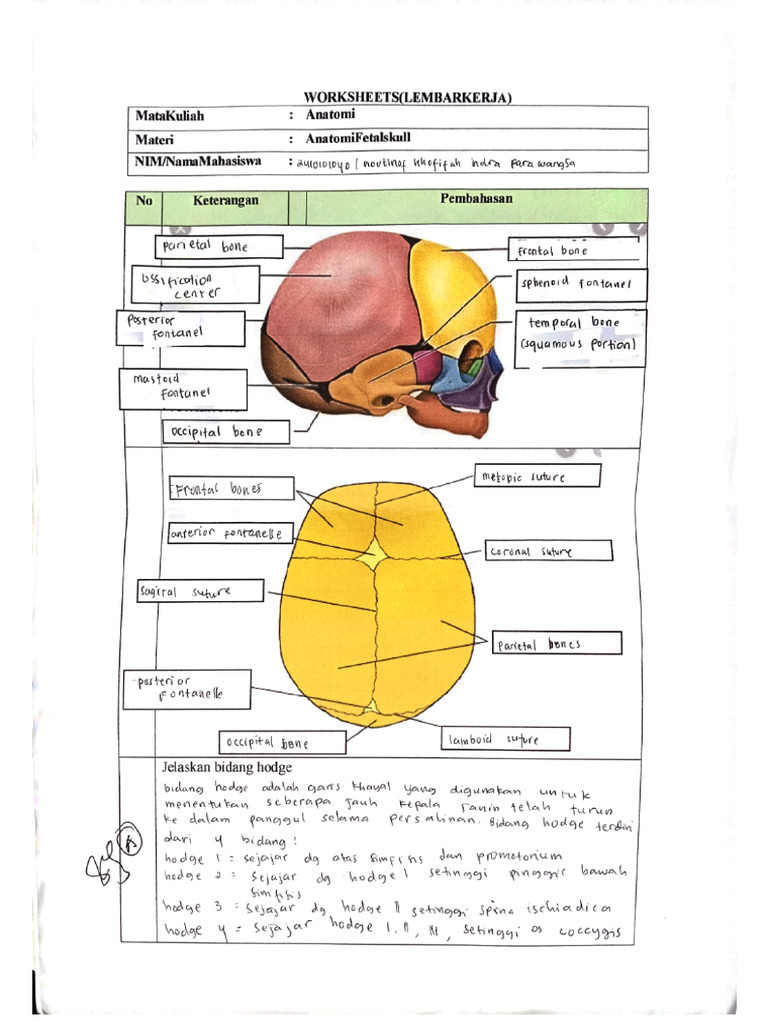 WORKSHEETS(LEMBARKERJA)
MataKuliah : Anatomi
Materi : AnatomiFetalskull
NIM/NamaMahasiswa : 2410101040 / noutinof khofifah indra parawangsa
No Keterangan Pembahasan
parietal bone
frontal bone
ossification
center
sphenoid fontanel
posterior
fontanel
temporal bone
(squamous portion)
mastoid
fontanel
occipital bone
metopic suture
Frontal bones
anterior fontanelle
coronal suture
sagiral suture
parietal bones
posterior
fontanelle
occipital bone
lamboid suture
Jelaskan bidang hodge
bidang hodge adalah garis khayal yang digunakan untuk
menentukan seberapa jauh kepala janin telah turun
ke dalam panggul selama persalinan. Bidang hodge terdiri
dari 4 bidang :
hodge 1 = sejajar dg atas simfisis dan promotorium
hodge 2 = sejajar dg hodge I setinggi pinggir bawah
simfisis
hodge 3 = sejajar dg hodge II setinggi spina ischiadica
hodge 4 = sejajar hodge I, II, III, setinggi os coccygis